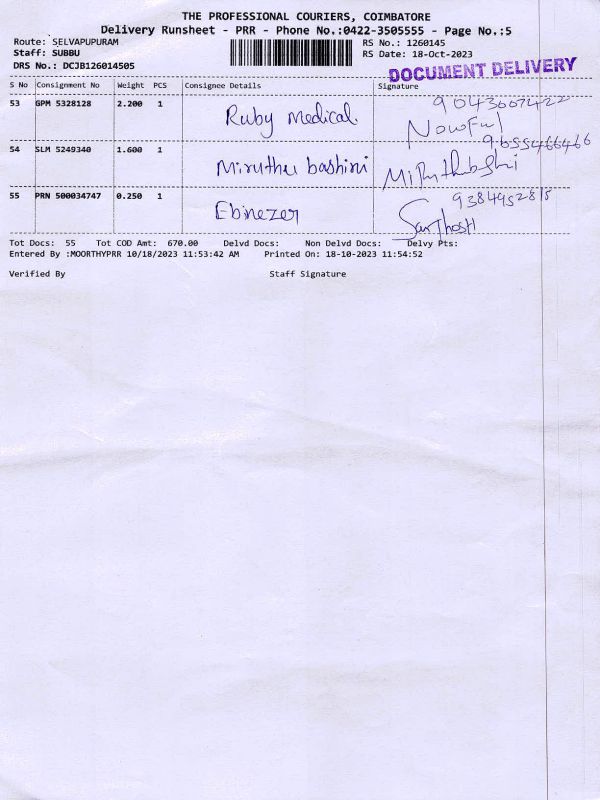 THE PROFESSIONAL COURIERS, COIMBATORE
Delivery Runsheet - PRR - Phone No.:0422-3505555 - Page No.:5
Route: SELVAPUPURAM
RS No.: 1260145
Staff: SUBBU
RS Date: 18-Oct-2023
DRS No.: DCJB126014505
DOCUMENT DELIVERY
S No Consignment No Weight PCS Consignee Details Signature
53 GPM 5328128 2.200 1 Ruby Medical 9043607422
Nowful
54 SLM 5249340 1.600 1 Miruthu bashini 9655466466
55 PRN 500034747 0.250 1 Ebinezer 9384952815
Santhosh
Tot Docs: 55 Tot COD Amt: 670.00 Delvd Docs: Non Delvd Docs: Delvy Pts:
Entered By :MOORTHYPRR 10/18/2023 11:53:42 AM Printed On: 18-10-2023 11:54:52
Verified By Staff Signature